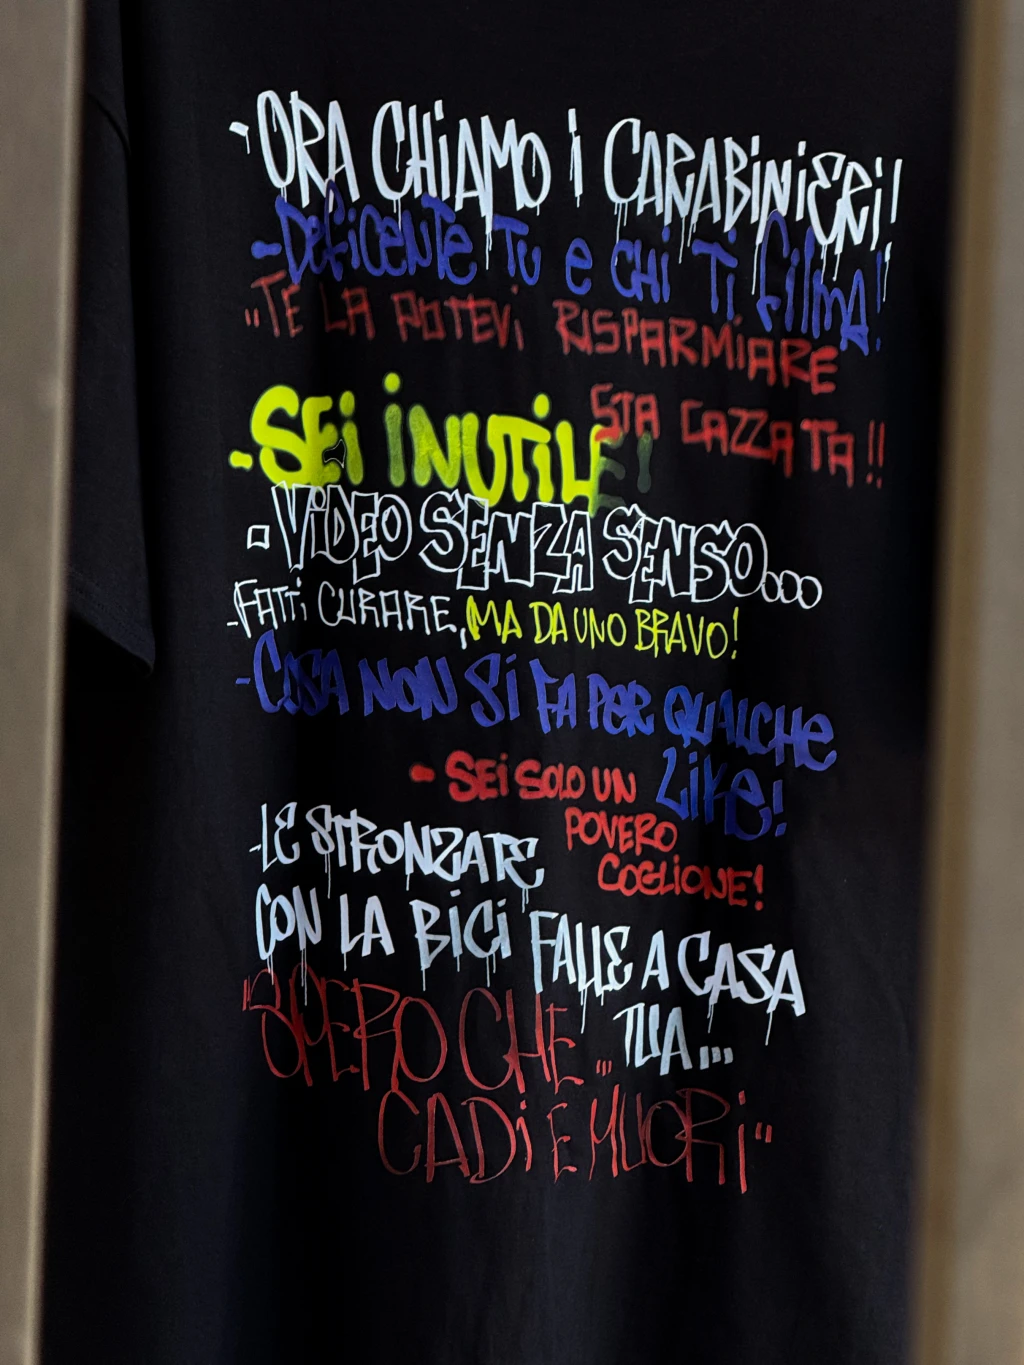 - ORA CHIAMO I CARABINIERI!
- DEFICENTE TU E CHI TI FILMA!
"TE LA POTEVI RISPARMIARE
STA CAZZATA!!
- SEI INUTILE!
- VIDEO SENZA SENSO...
- FATTI CURARE, MA DA UNO BRAVO!
- COSA NON SI FA PER QUALCHE
LIKE!
- SEI SOLO UN
POVERO
COGLIONE!
- LE STRONZATE
CON LA BICI FALLE A CASA
TUA...
"SPERO CHE...
CADI E MUORI"